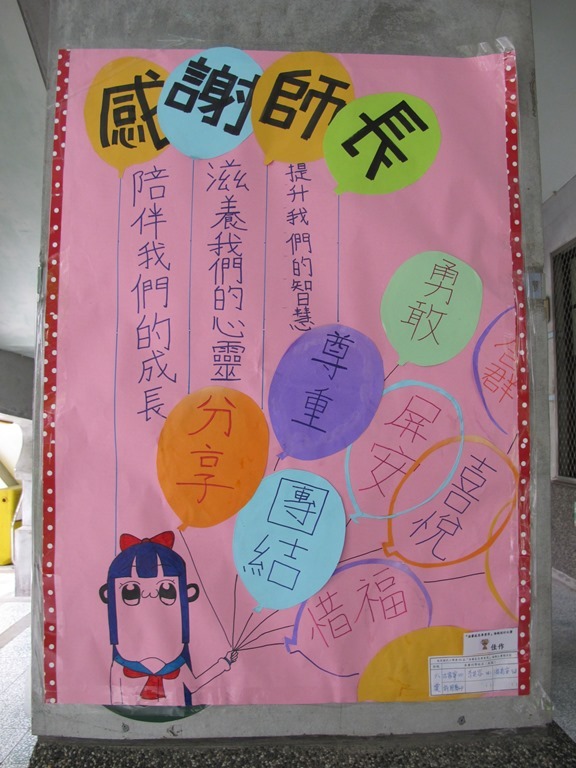 感謝師長
提升我們的智慧
滋養我們的心靈
陪伴我們的成長
勇敢
合群
尊重
屏安
分享
喜悅
團結
惜福
佳作